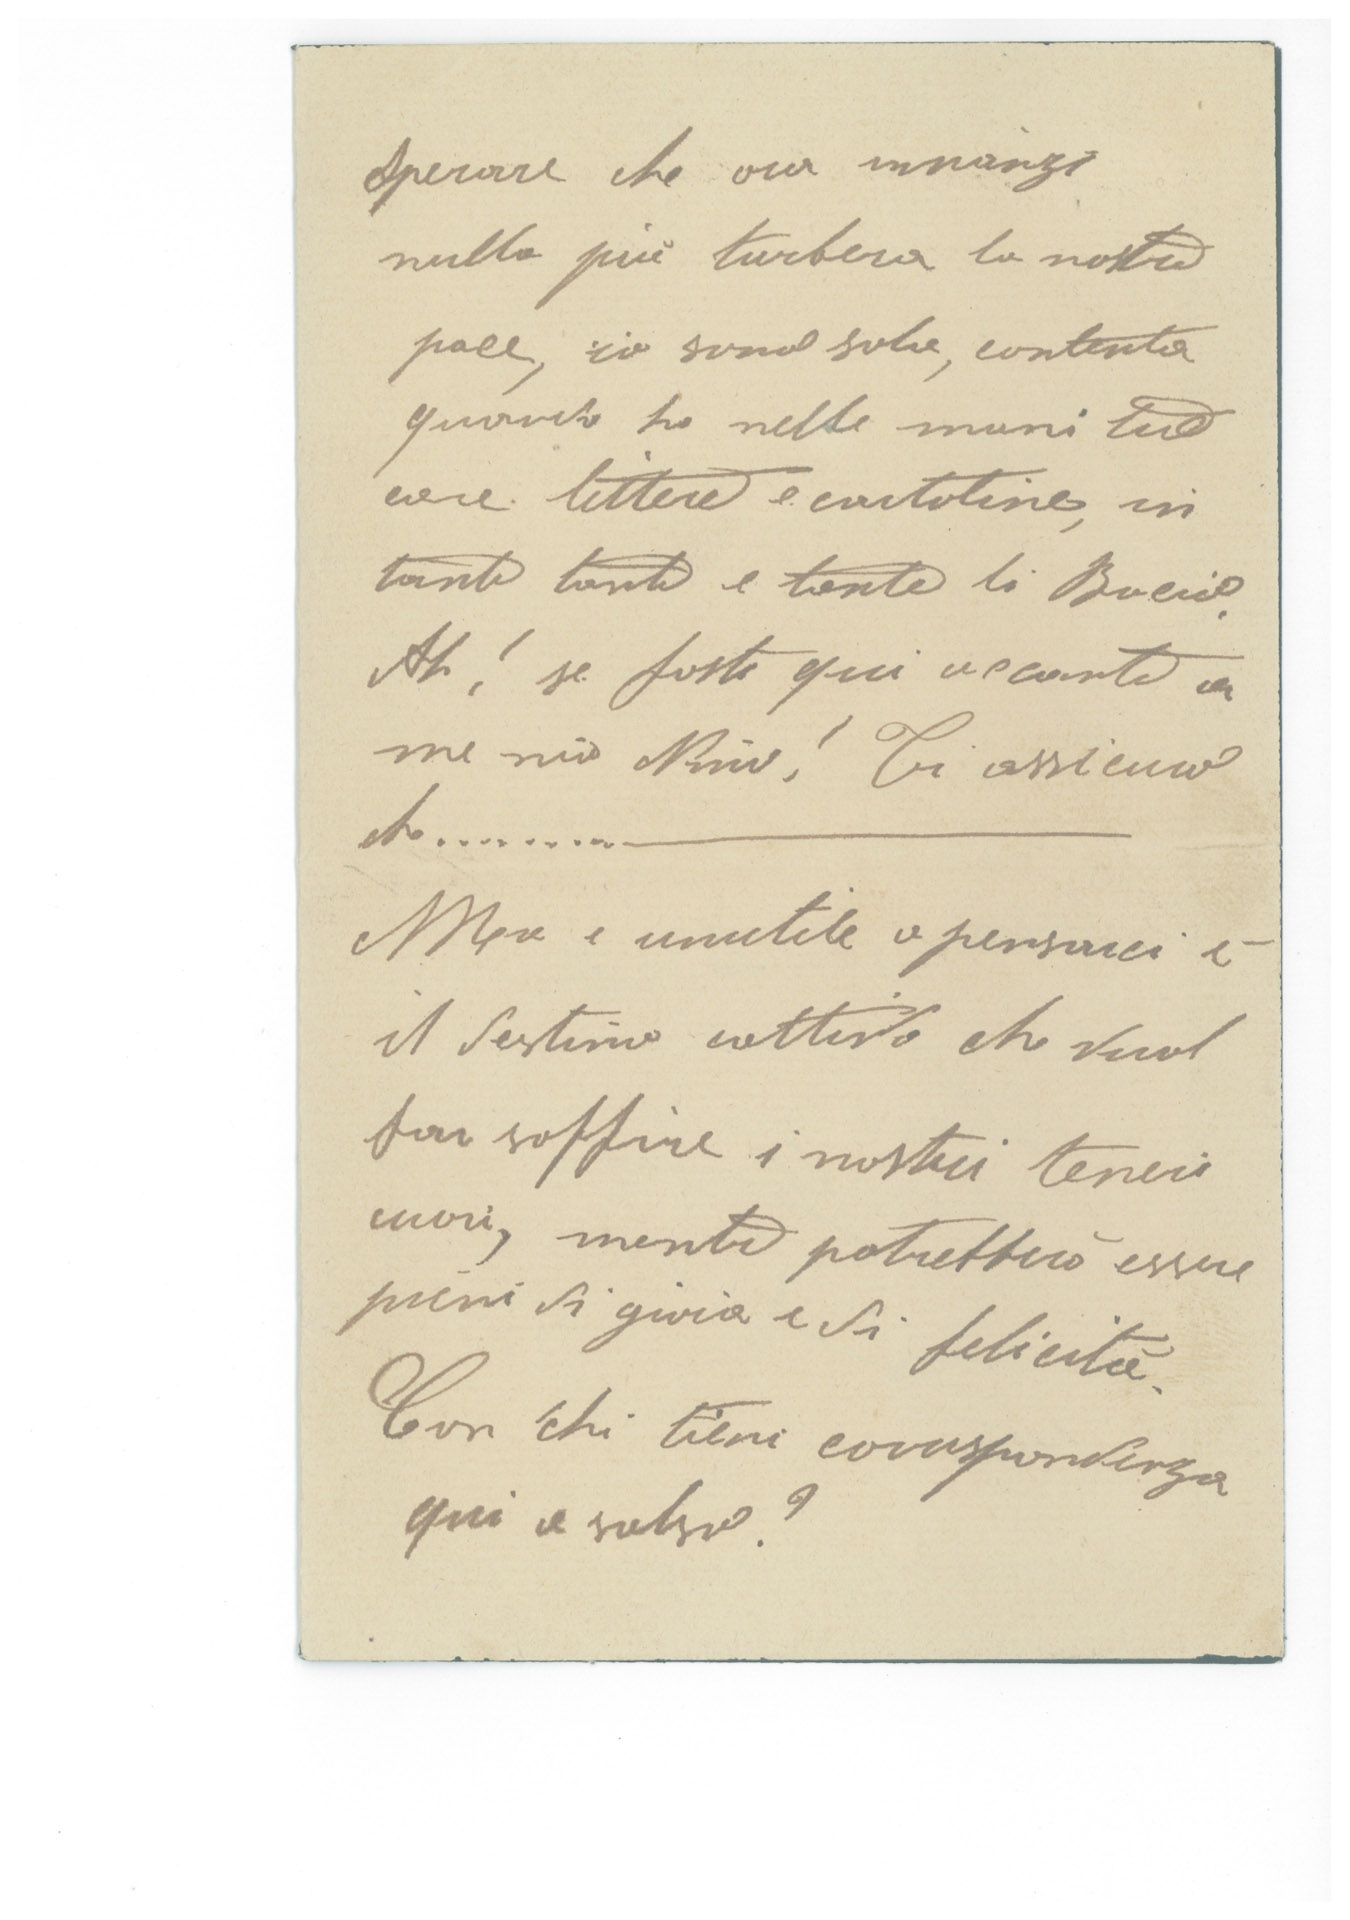 sperare che ora innanzi
nulla più turbera la nostra
pace, io sono sola, contenta
quando ho nelle mani tue
care lettere e cartoline, in
tante tante e tante li Bacio.
Ah! se fosti qui accanto a
me mio Nino! Ti assicuro
che.........
Ma e inutile a pensarci è
il destino cattivo che vuol
far soffire i nostri teneri
cuori, mentre potrebbero essere
pieni di gioia e di felicità.
Con chi tieni corrispondenza
qui a salso?